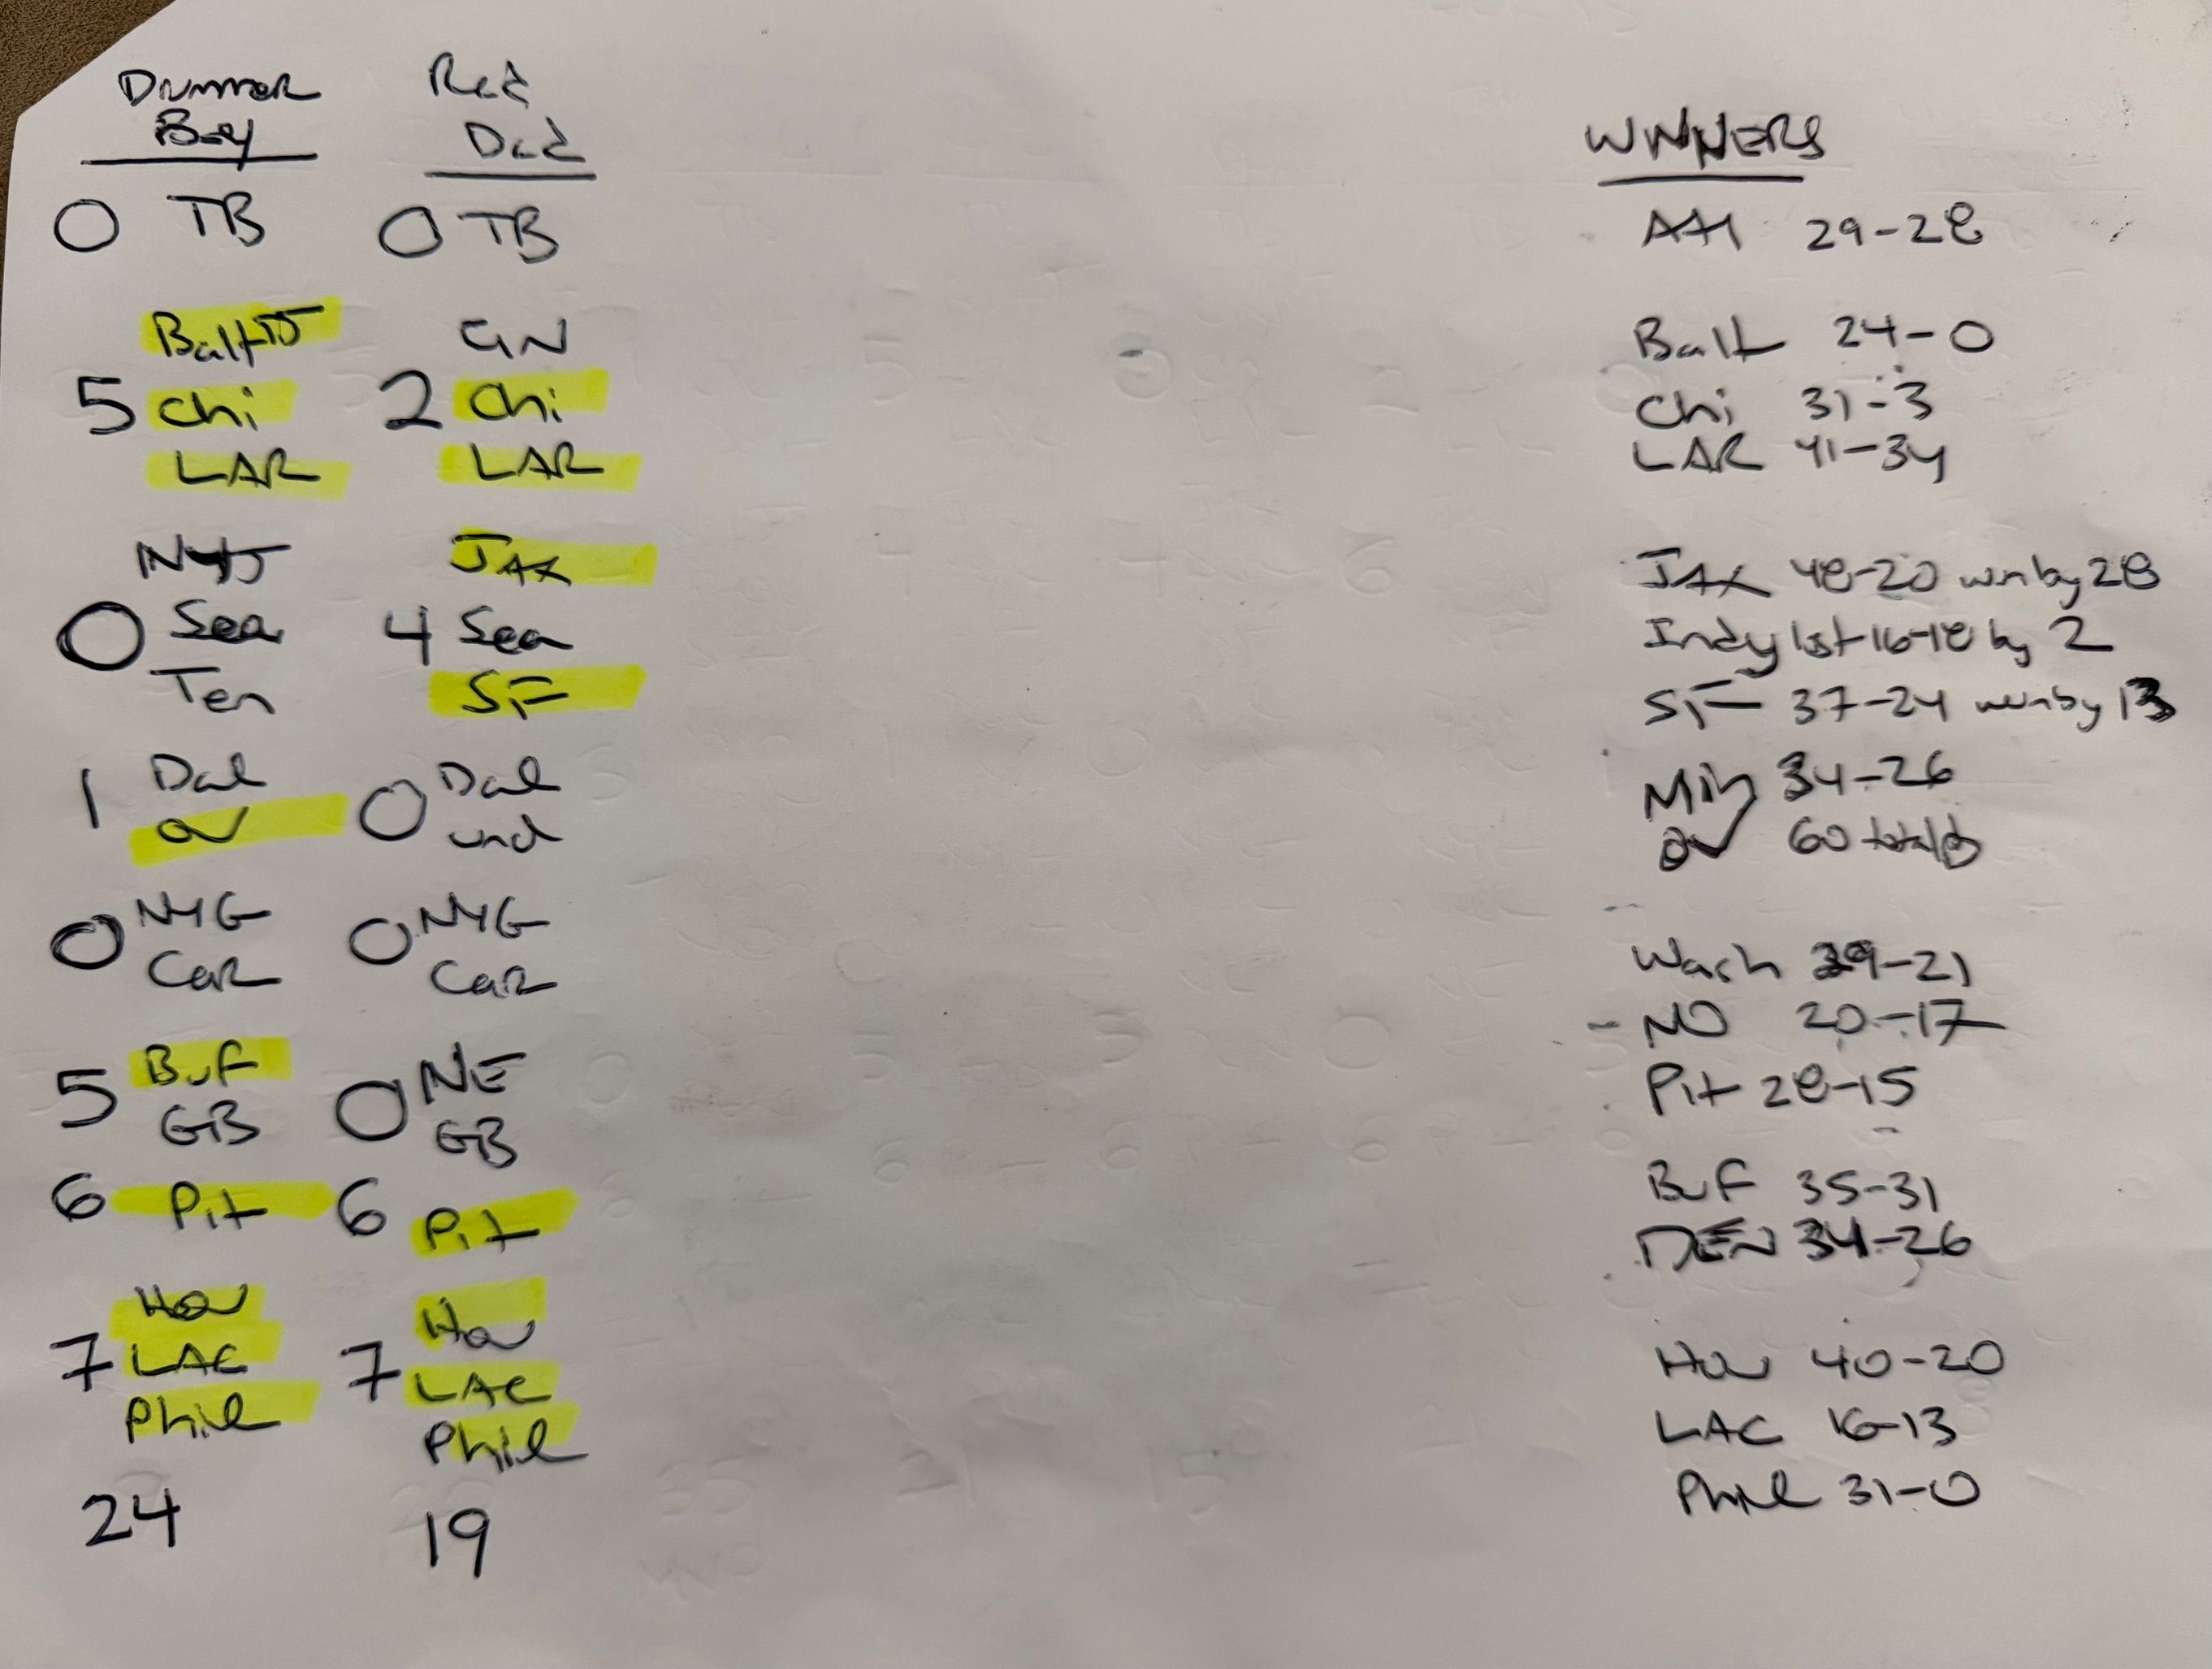 Drummer
Boy
0 TB
Balt 15
5 Chi
LAR
NYJ
0 Sea
Ten
1 Dal
ov
0 NYG
Car
5 Buf
GB
6 Pit
Hou
7 LAC
Phil
24
Red
Dad
0 TB
CIN
2 Chi
LAR
JAX
4 Sea
SF
0 Dal
und
0 NYG
Car
0 NE
GB
6 Pit
Hou
7 LAC
Phil
19
WINNERS
Atl 29-28
Balt 24-0
Chi 31-3
LAR 41-34
JAX 48-20 win by 28
Indy lost 16-18 by 2
SF 37-24 won by 13
Min 34-26
ov 60 total
Wash 29-21
NO 20-17
Pit 28-15
Buf 35-31
DEN 34-26
Hou 40-20
LAC 16-13
Phil 31-0